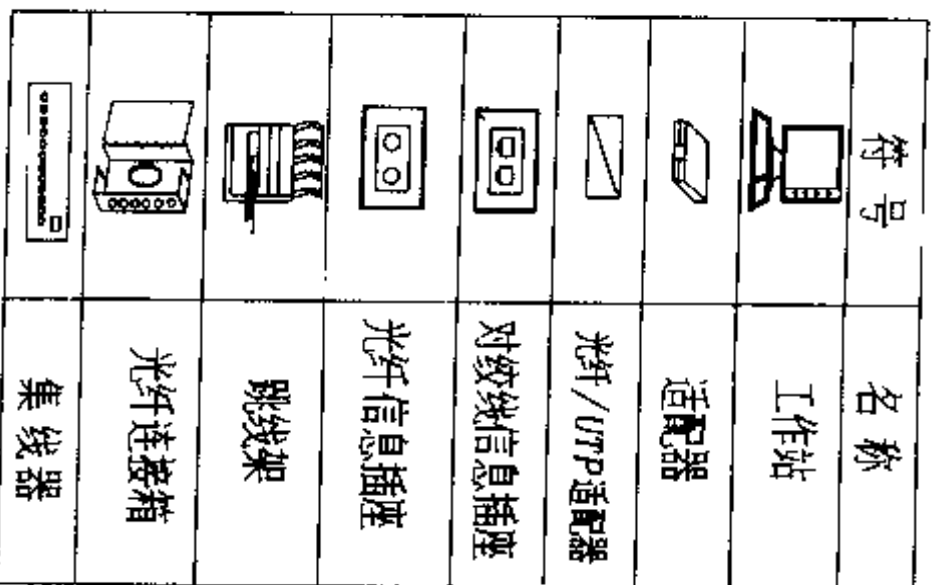 符号
名称
工作站
适配器
光纤/UTP适配器
对绞线信息插座
光纤信息插座
跳线架
光纤连接箱
集线器